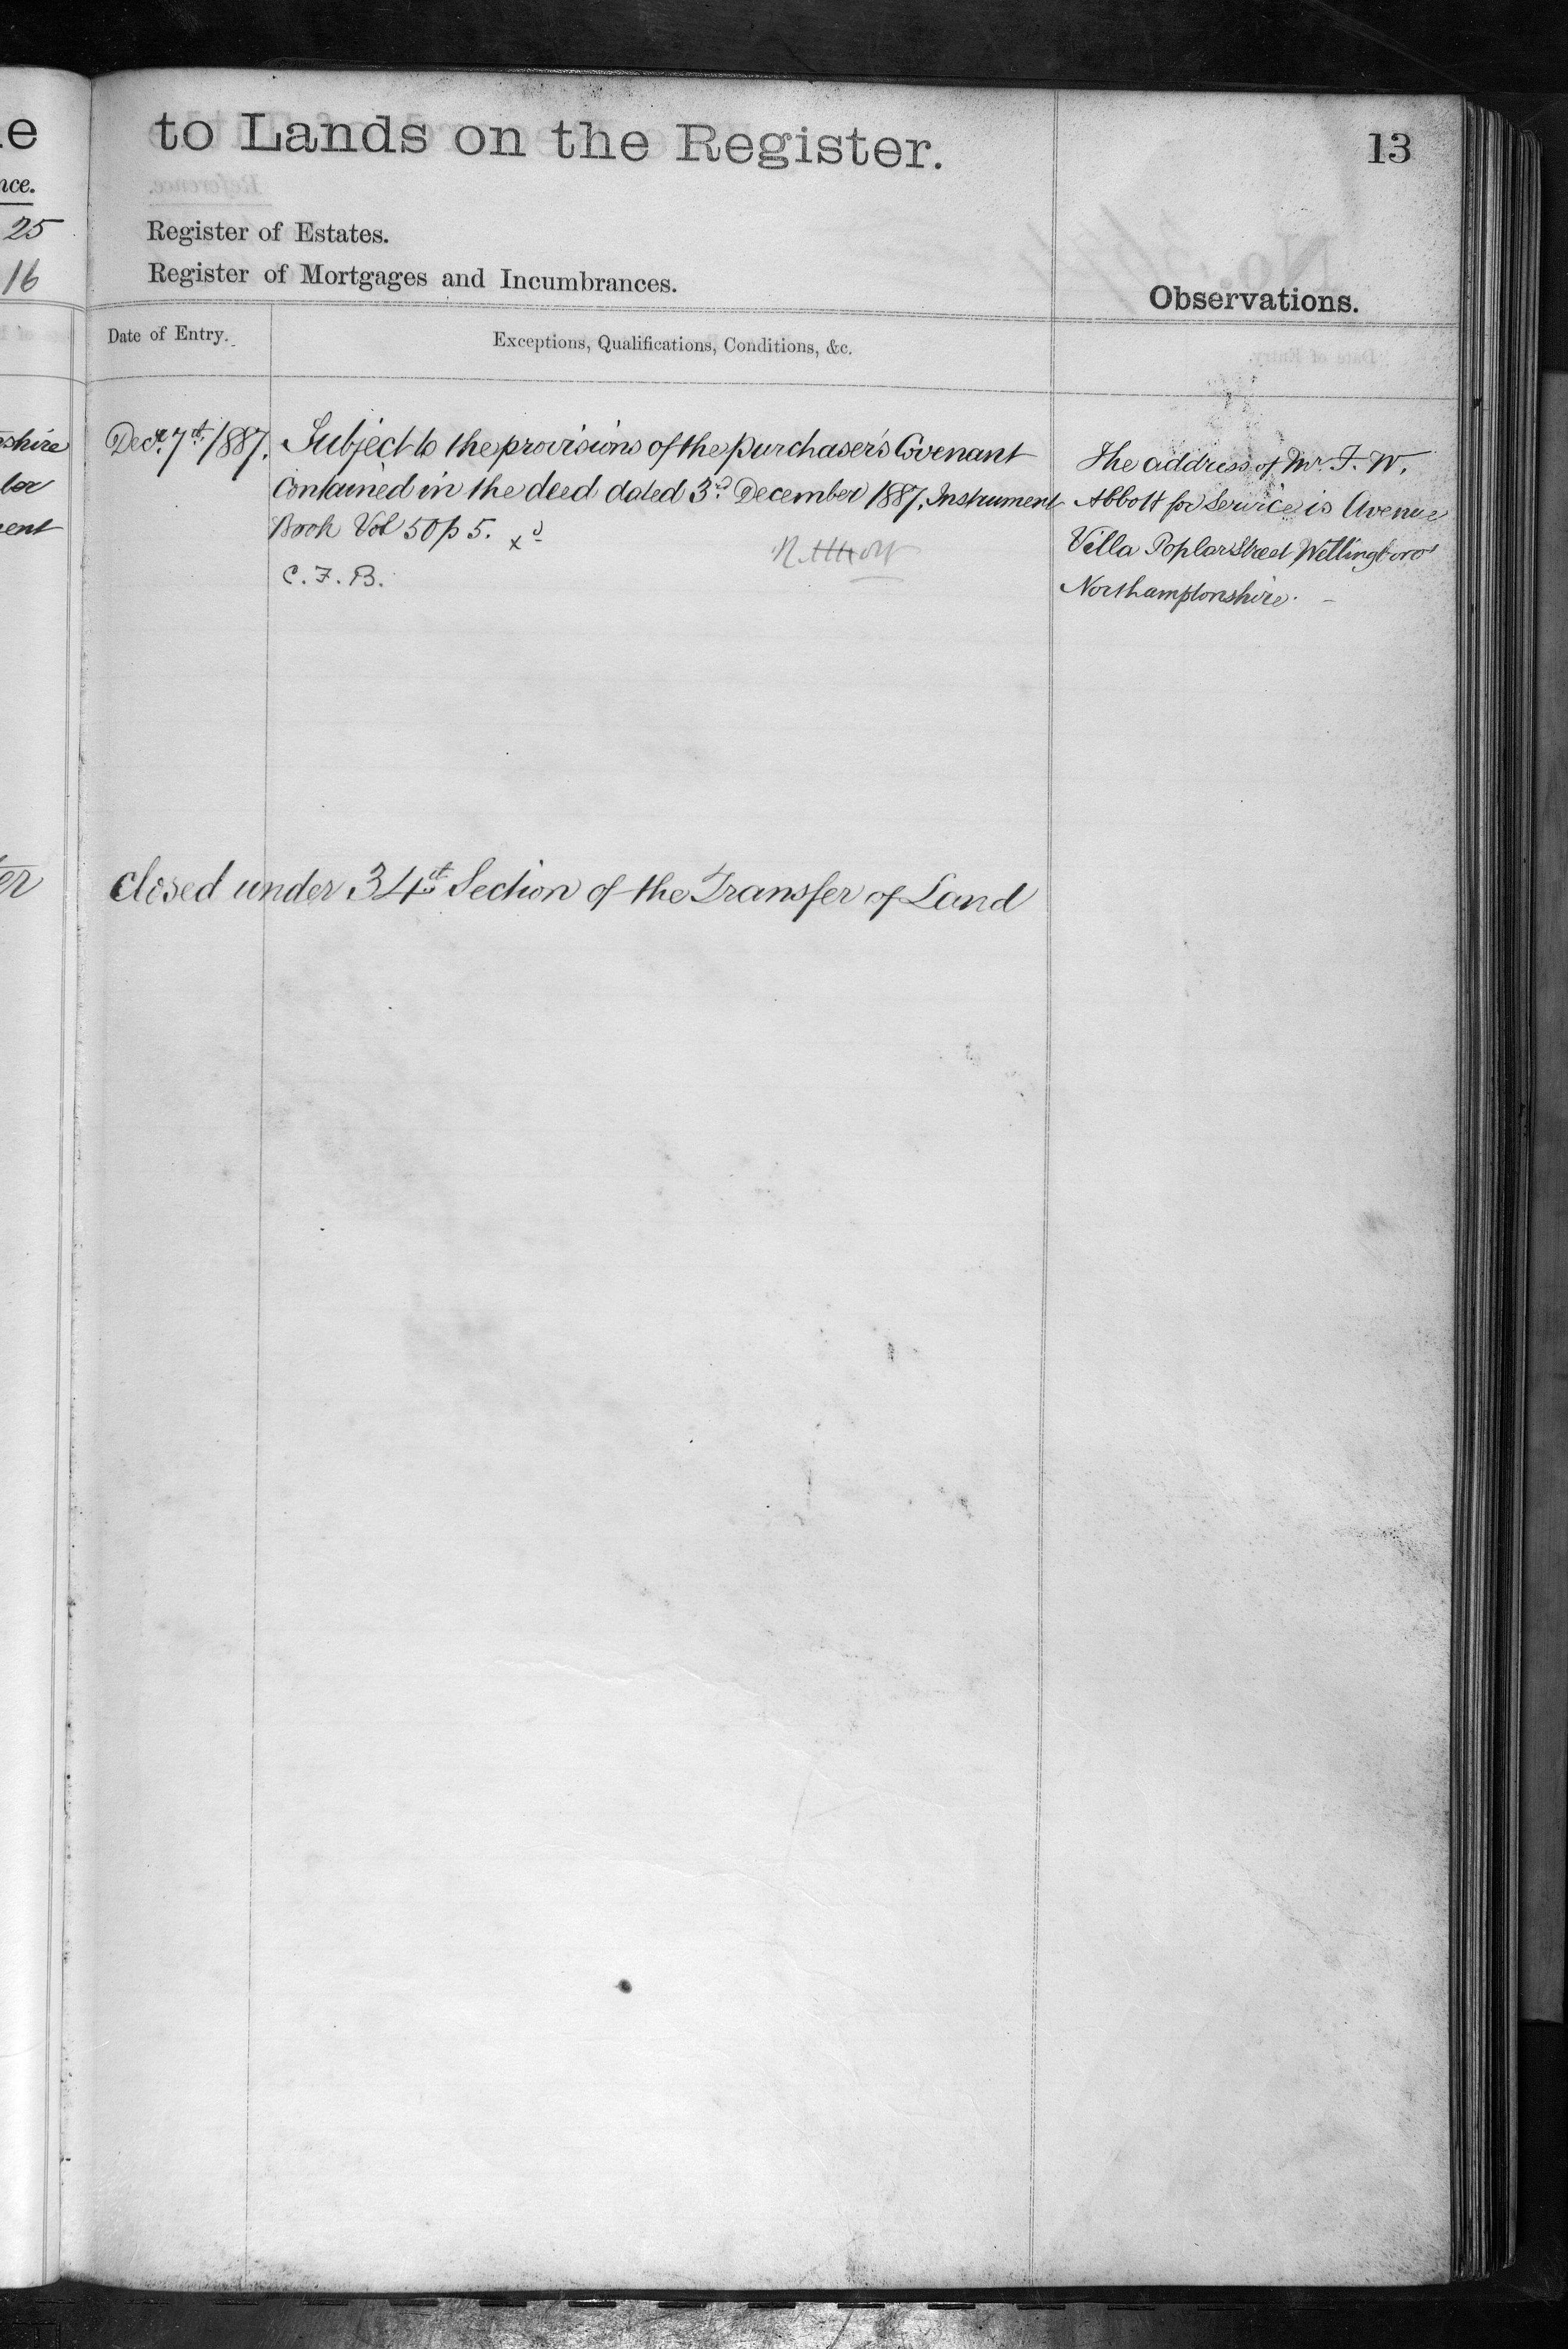 to Lands on the Register.
13
nce.
25
16
Register of Estates.
Register of Mortgages and Incumbrances.
Observations.
Date of Entry.
Exceptions, Qualifications, Conditions, &c.
Decr. 7th 1887. Subject to the provisions of the purchaser's Covenant
contained in the deed dated 3rd December 1887. Instrument
Book Vol 50 p 5.
C. F. B.
The address of Mr. F. W.
Abbott for service is Avenue
Villa Poplar Street Wellingboro'
Northamptonshire. -
closed under 34th Section of the Transfer of Land